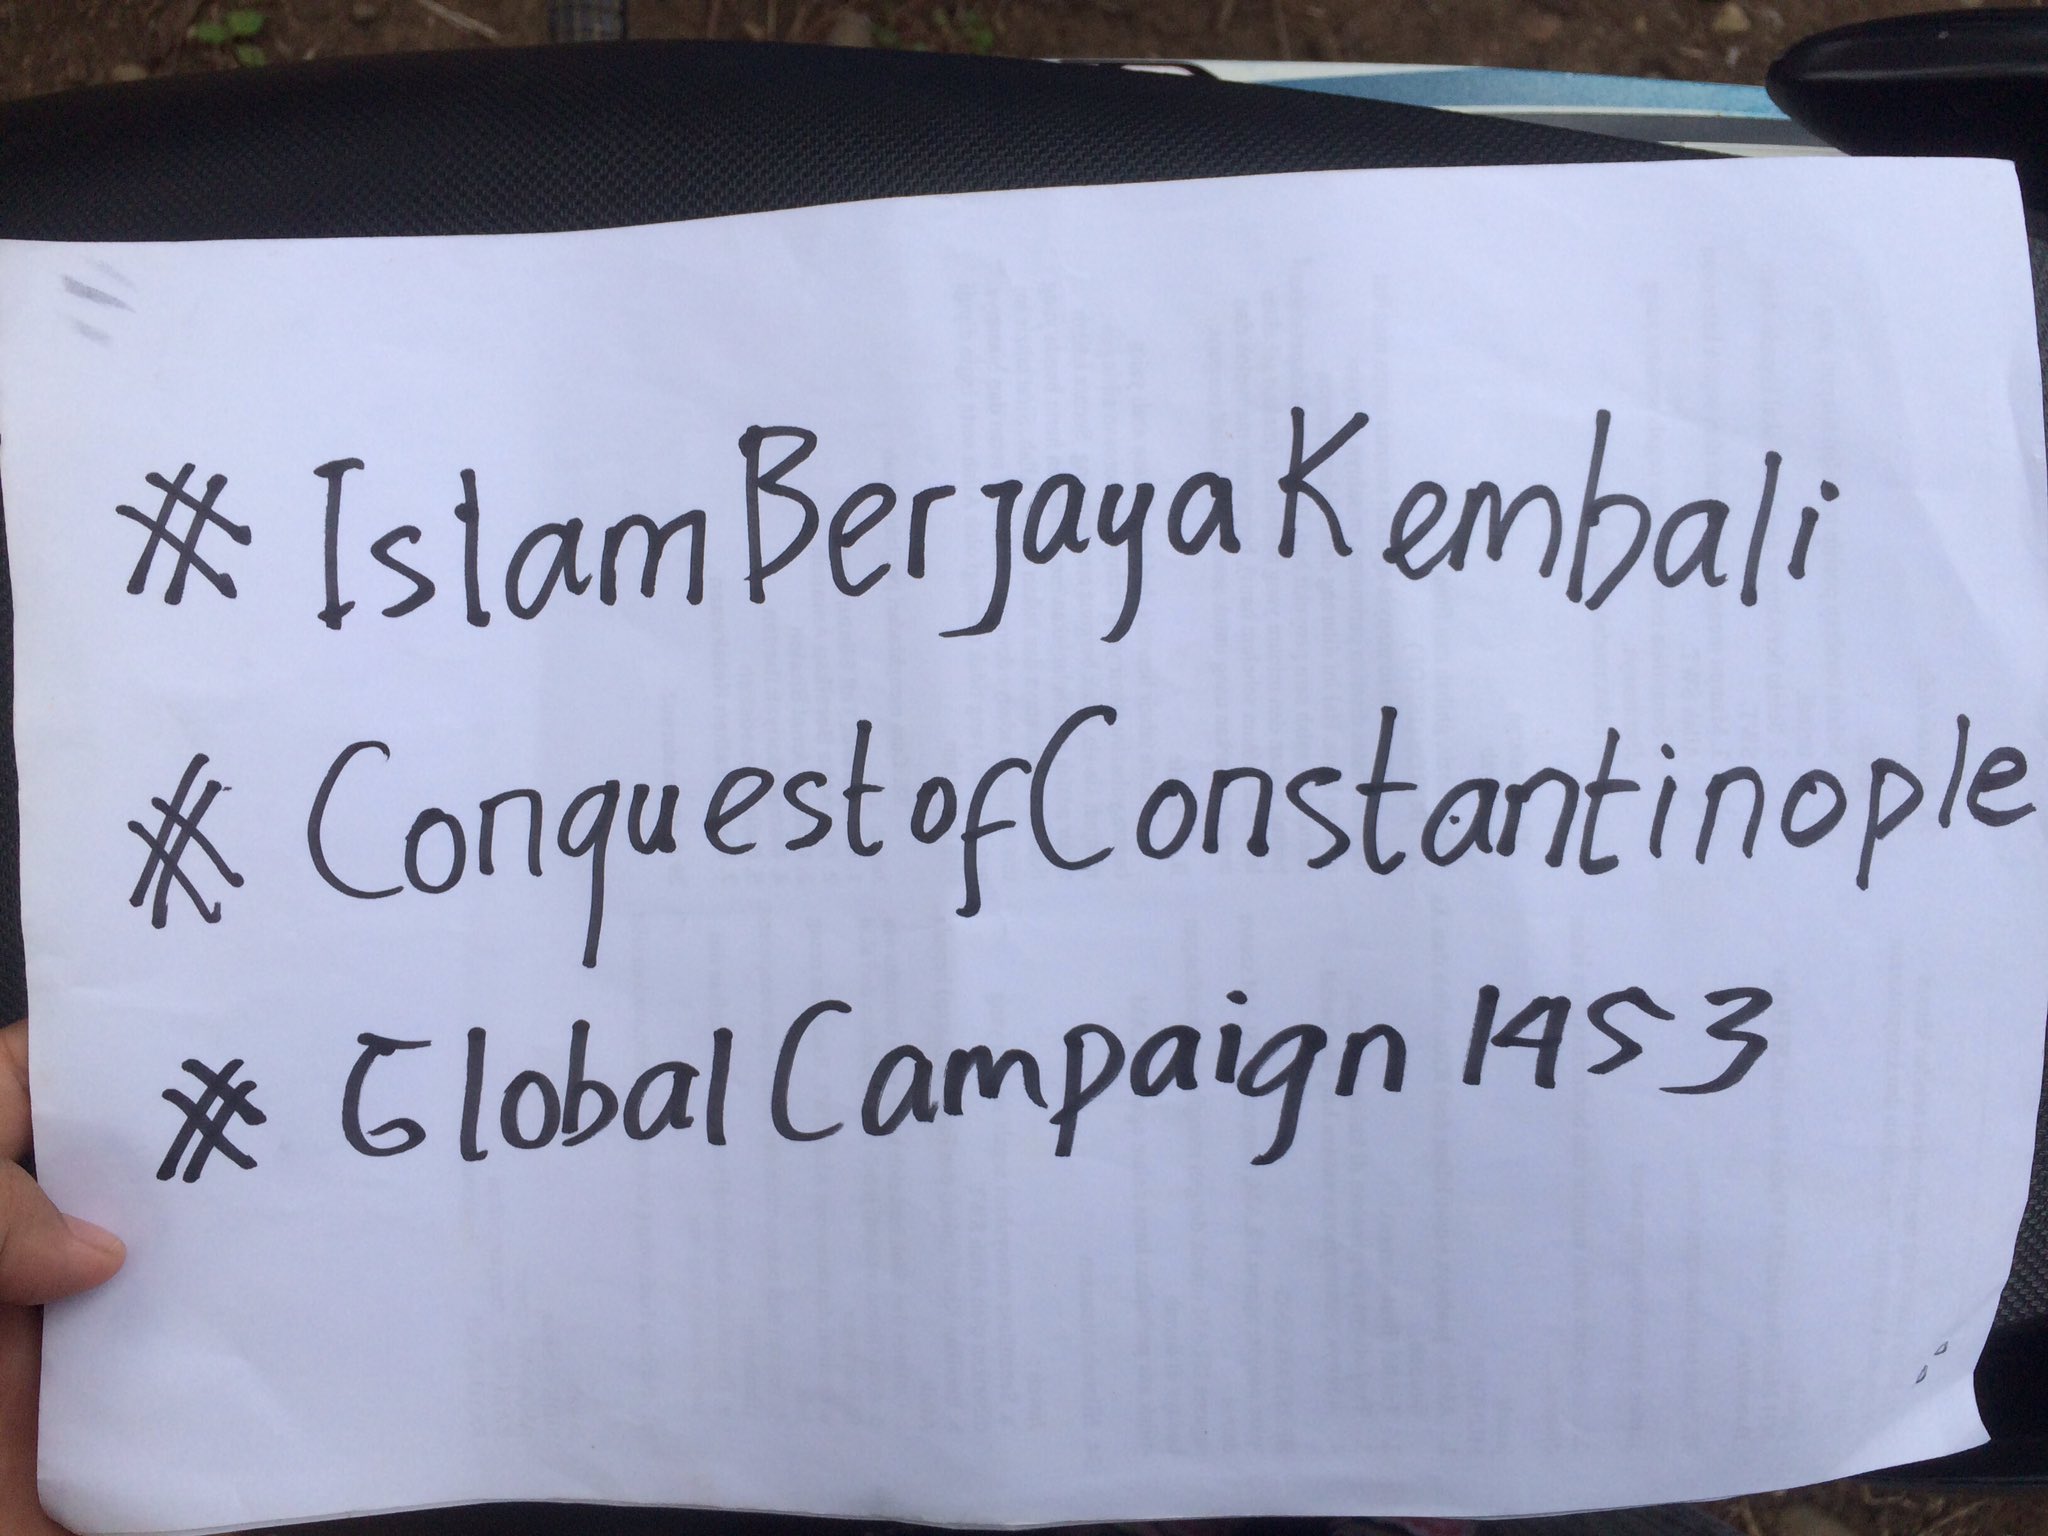 # IslamBerjayaKembali
# ConquestofConstantinople
# GlobalCampaign 1453